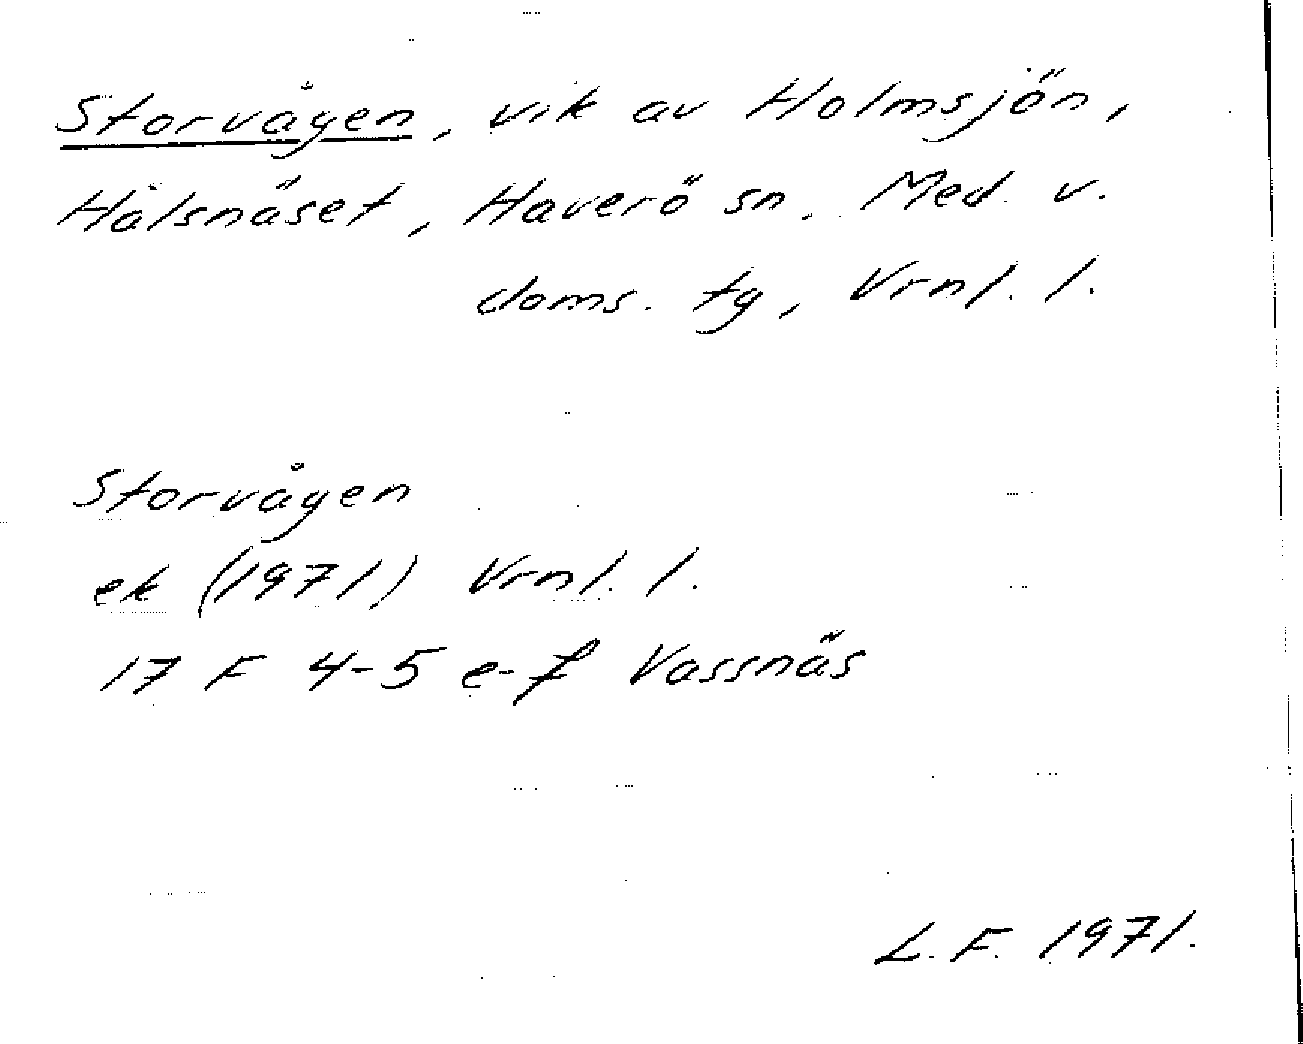 Storvågen, vik av Holmsjön,
Hålsnäset, Haverö sn. Med. v.
doms. tg, Vrnl. l.
Storvågen
ek (1971) Vrnl. l.
17 F 4-5 e-f Vassnäs
L.F. 1971.